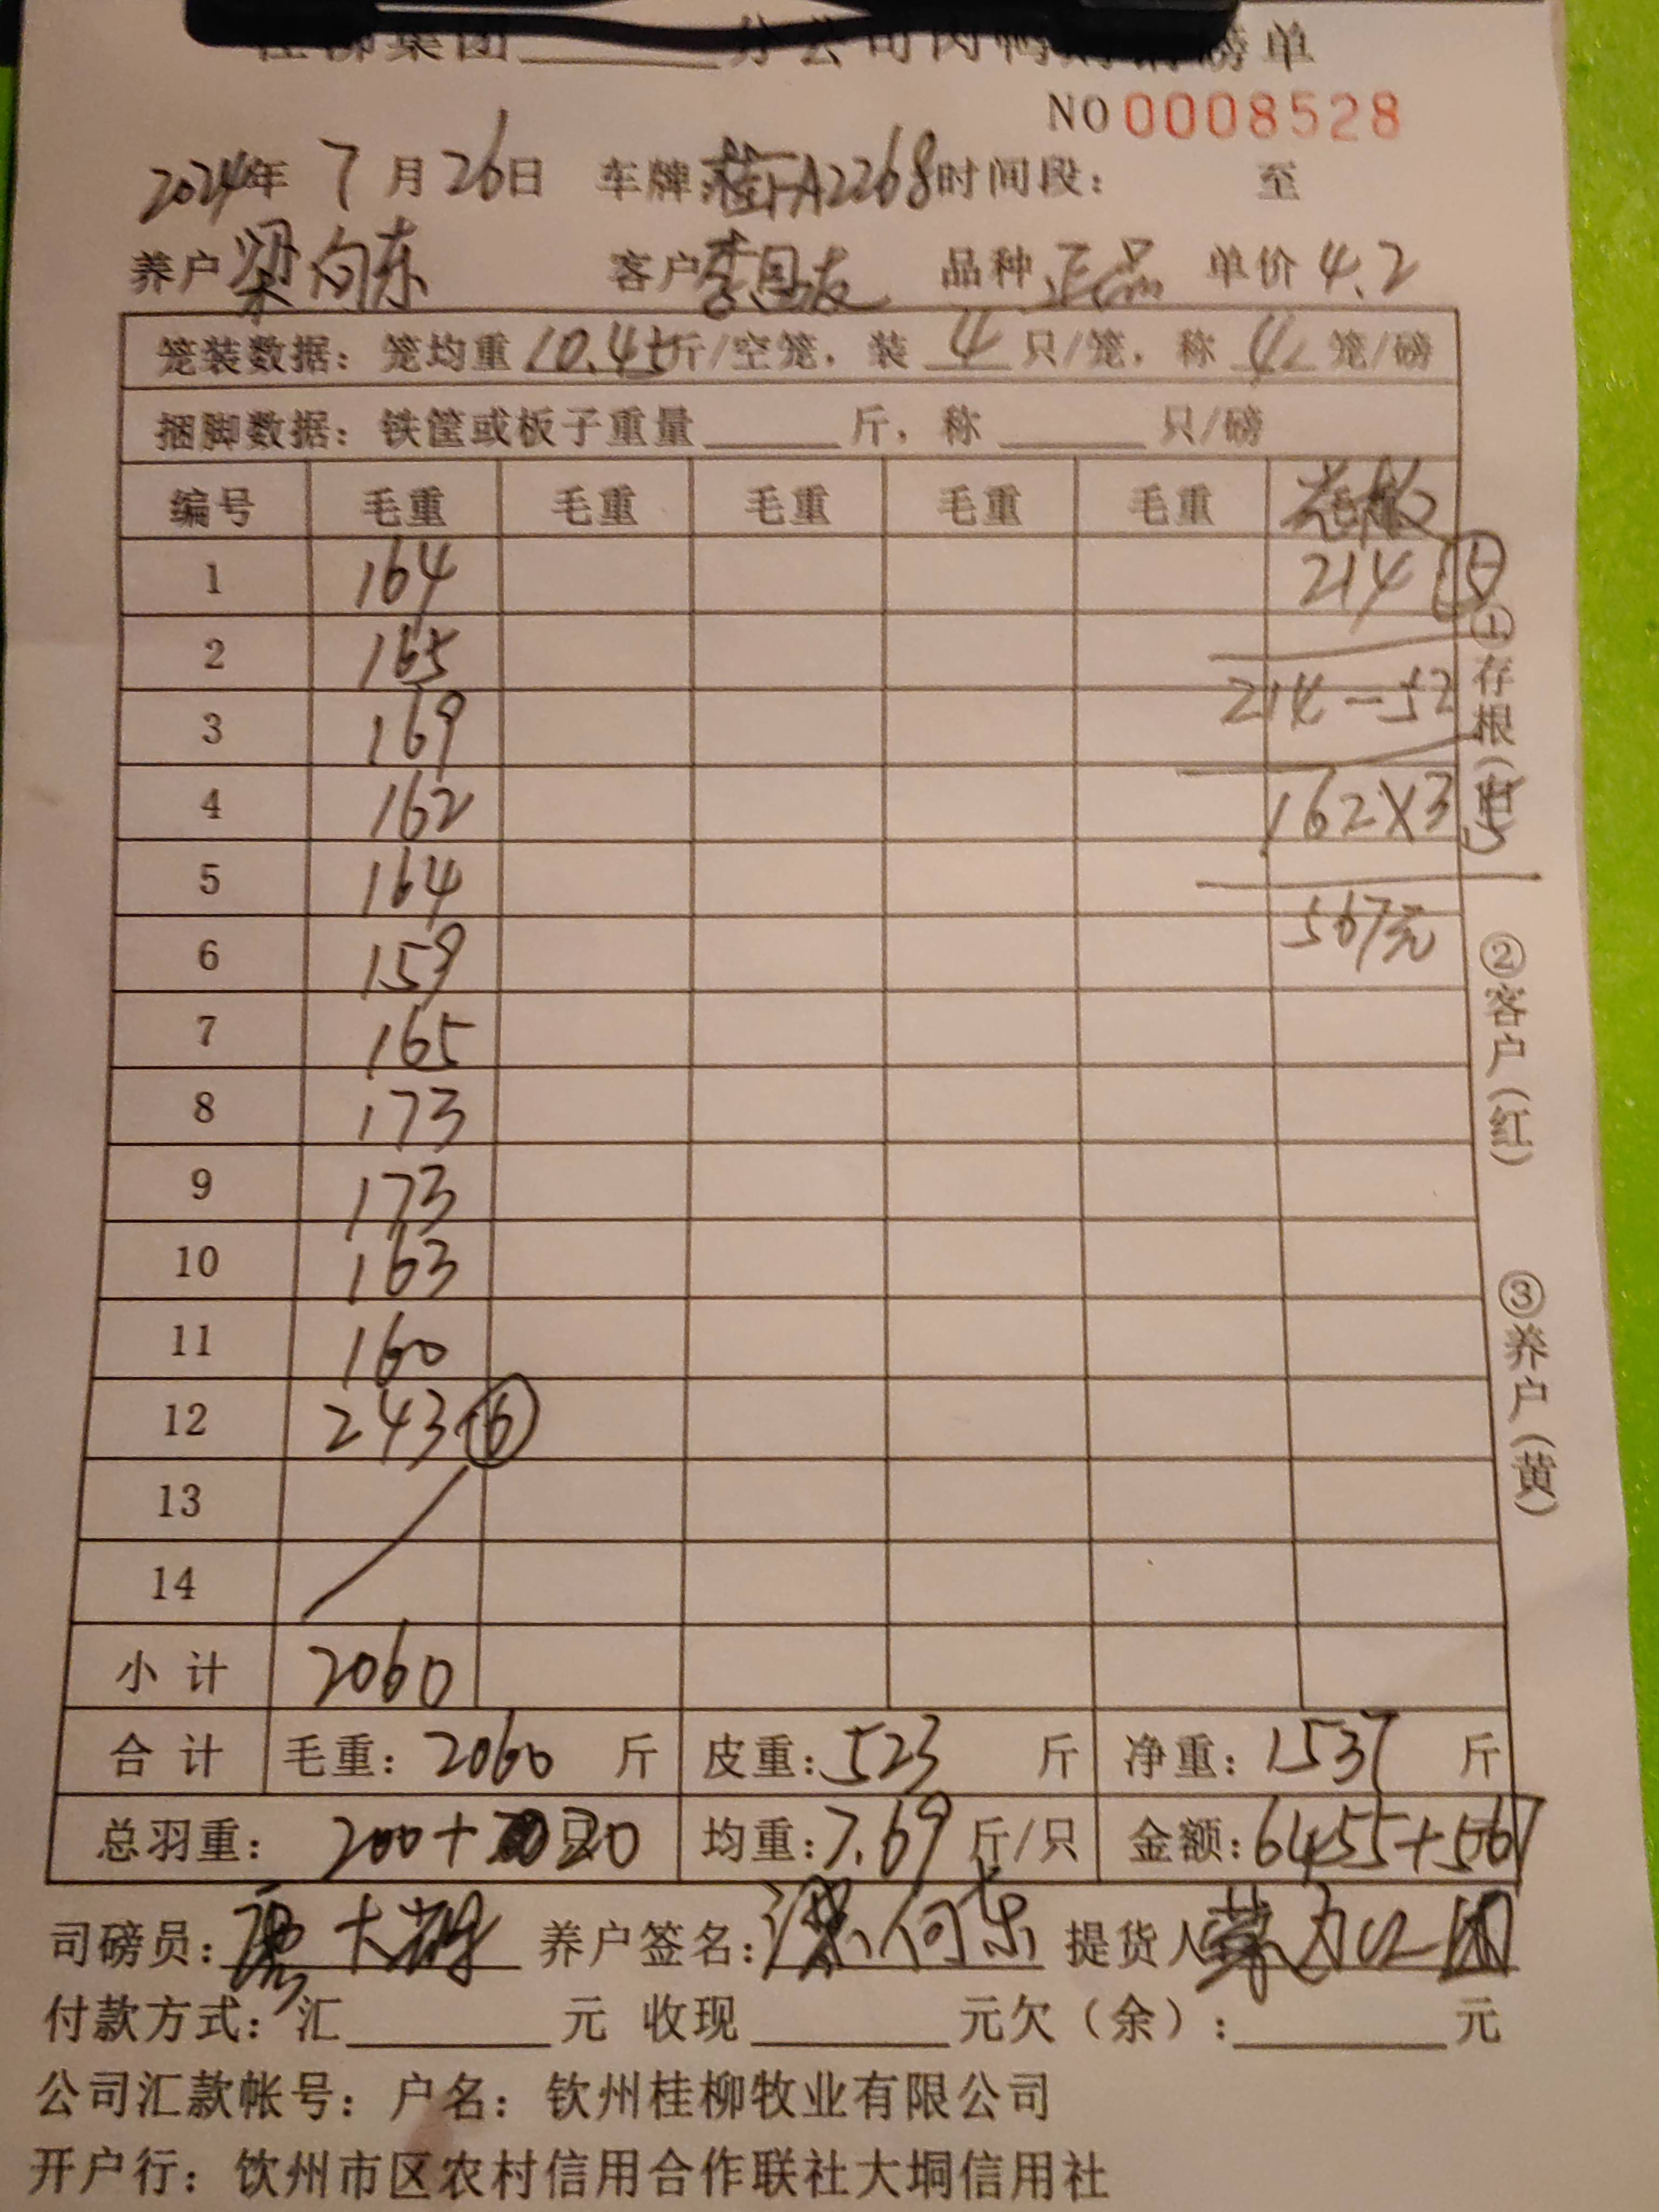 桂柳集团______分公司肉鸭购销磅单
NO 0008528
2024年 7 月 26日 车牌:桂FA2268 时间段: 至
养户 梁向东 客户 李昌友 品种 正品 单价 4.2
笼装数据: 笼均重 10.45 斤/空笼, 装 4 只/笼, 称 4 笼/磅
捆脚数据: 铁筐或板子重量______斤, 称______只/磅
编号 毛重 毛重 毛重 毛重 毛重
1 164 214 5
2 165
3 169 214-52
4 162 162×3.5
5 164
6 159 567元
7 165
8 173
9 173
10 163
11 160
12 243 6
13
14
小 计 2060
合 计 毛重: 2060 斤 皮重: 523 斤 净重: 1537 斤
总羽重: 200+20 只 均重: 7.69 斤/只 金额: 6455+567
司磅员: 养户签名: 梁向东 提货人
付款方式: 汇______元 收现______元欠(余):______元
公司汇款帐号: 户名: 钦州桂柳牧业有限公司
开户行: 钦州市区农村信用合作联社大垌信用社
①存根(白) ②客户(红) ③养户(黄)